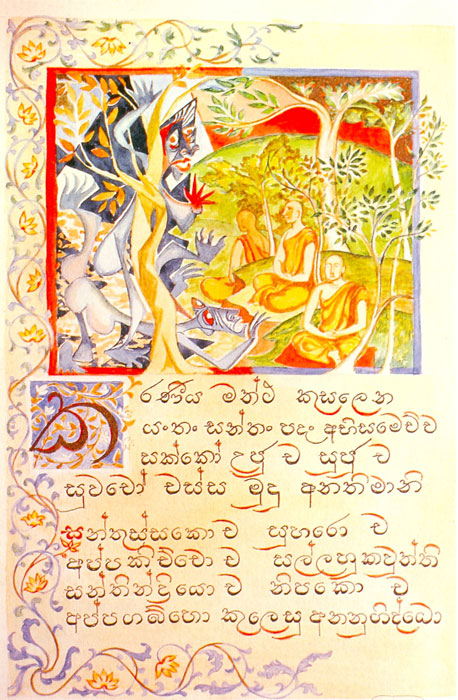 කරණීය මත්ථ කුසලෙන
යංතං සන්තං පදං අභිසමෙච්ච
සක්කෝ උජු ච සුජු ච
සුවචෝ චස්ස මුදු අනතිමානි
සන්තුස්සකො ච සුභරො ච
අප්පකිච්චො ච සල්ලහුකවුත්ති
සන්තින්ද්‍රියො ච නිපකො ච
අප්පගබ්භො කුලෙසු අනනුගිද්ධො